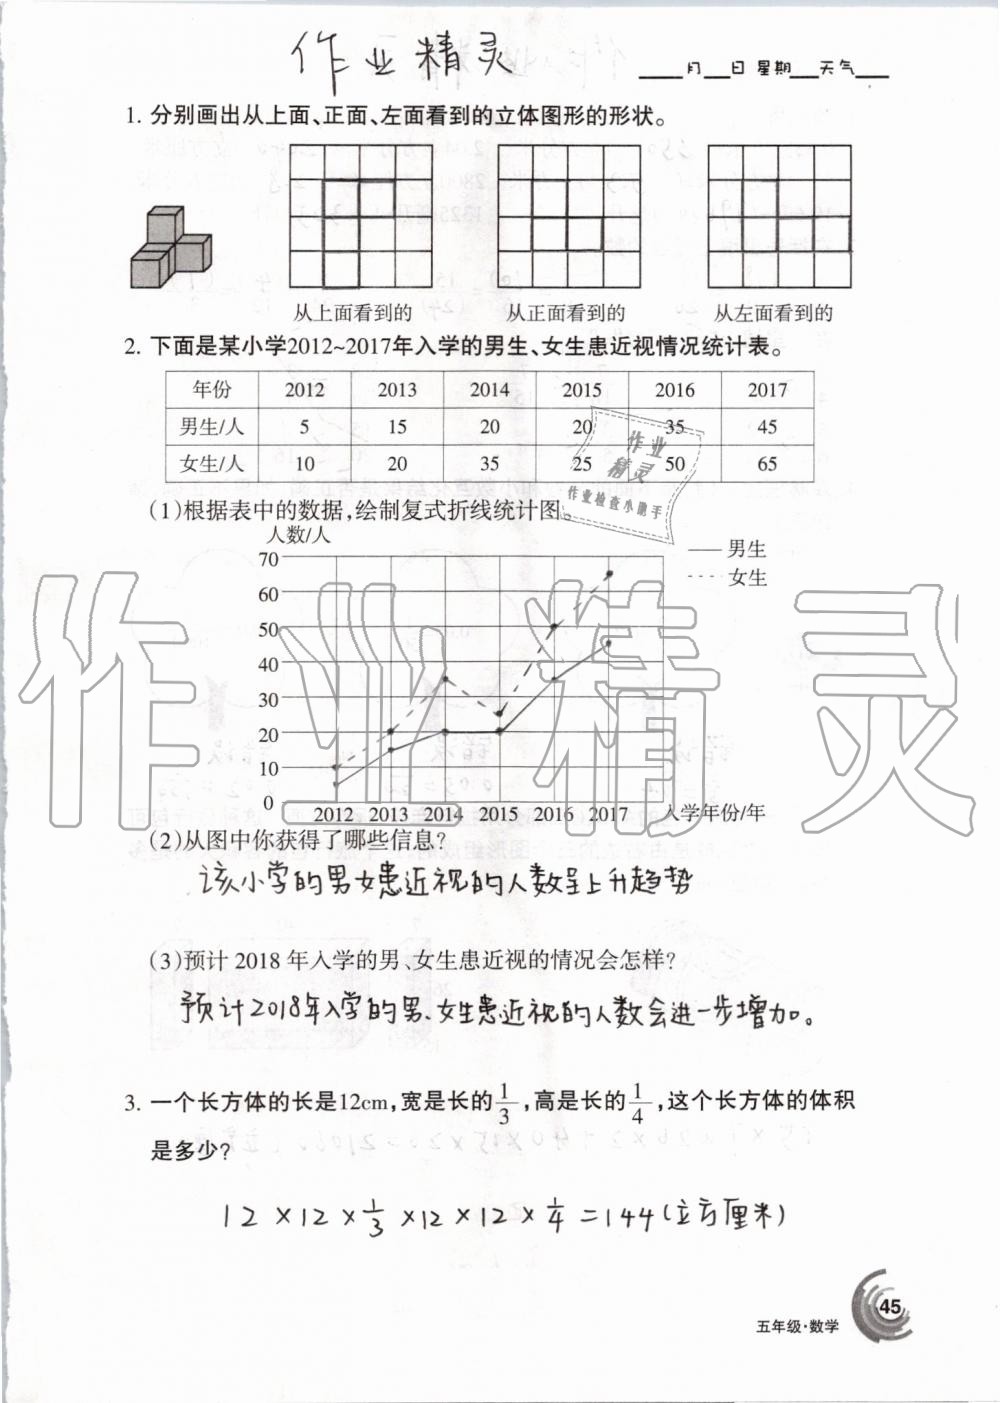 作业精灵
____月___日 星期___天气____
1. 分别画出从上面、正面、左面看到的立体图形的形状。
从上面看到的 从正面看到的 从左面看到的
2. 下面是某小学2012~2017年入学的男生、女生患近视情况统计表。
年份 2012 2013 2014 2015 2016 2017
男生/人 5 15 20 20 35 45
女生/人 10 20 35 25 50 65
作业
精灵
作业检查小助手
(1)根据表中的数据,绘制复式折线统计图。
人数/人
男生
女生
70
60
50
40
30
20
10
0
2012 2013 2014 2015 2016 2017 入学年份/年
作业精灵
(2)从图中你获得了哪些信息?
该小学的男女患近视的人数呈上升趋势
(3)预计 2018 年入学的男、女生患近视的情况会怎样?
预计2018年入学的男、女生患近视的人数会进一步增加。
3. 一个长方体的长是12cm,宽是长的1/3,高是长的1/4,这个长方体的体积
是多少?
12×12×1/3×12×12×1/4=144(立方厘米)
45
五年级·数学